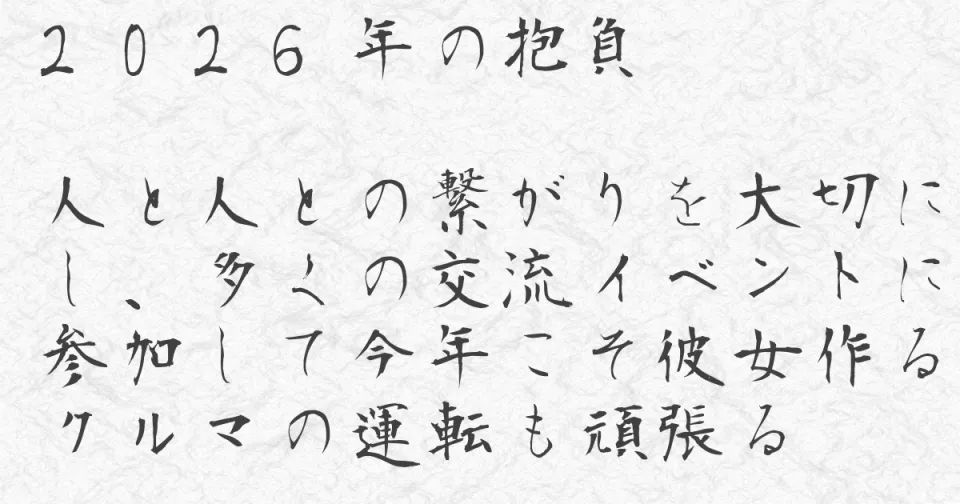 2026年の抱負
人と人との繋がりを大切に
し、多くの交流イベントに
参加して今年こそ彼女作る
クルマの運転も頑張る